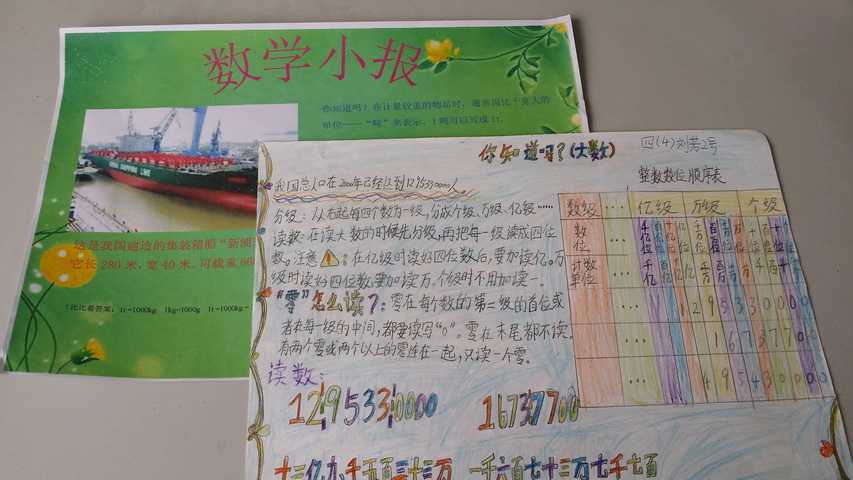 数学小报
你知道吗?在计量较重的物品时,通常用比
单位——“吨”来表示,1吨可以写成1t。
这是我国建造的集装箱船“新浦
它长280米,宽40米,可载重66
1t=1000kg 1kg=1000g 1t=1000kg
四(4)刘芳2号
你知道吗?(大数)
整数数位顺序表
我国总人口在2000年已经达到1295330000人。
分级:从右起每四个数为一级,分成个级、万级、亿级……
读数:在读大数的时候先分级,再把每一级读成四位
数。注意 ! :在亿级时读好四位数后,要加读亿。万
级时读好四位数要加读万。个级时不用加读一。
“零”怎么读?:零在每个数的第二级的首位或
者在每一级的中间,都要读写“0”。零在末尾都不读。
有两个零或两个以上的零连在一起,只读一个零。
读数:
1295330000 16737700
十二亿九千五百三十三万 一千六百七十三万七千七百
数级 … 亿级 万级 个级
数位 … 千亿位 百亿位 十亿位 亿位 千万位 百万位 十万位 万位 千位 百位 十位
计数单位 … 千亿
… 1295330000
… 16737700
… 495430000